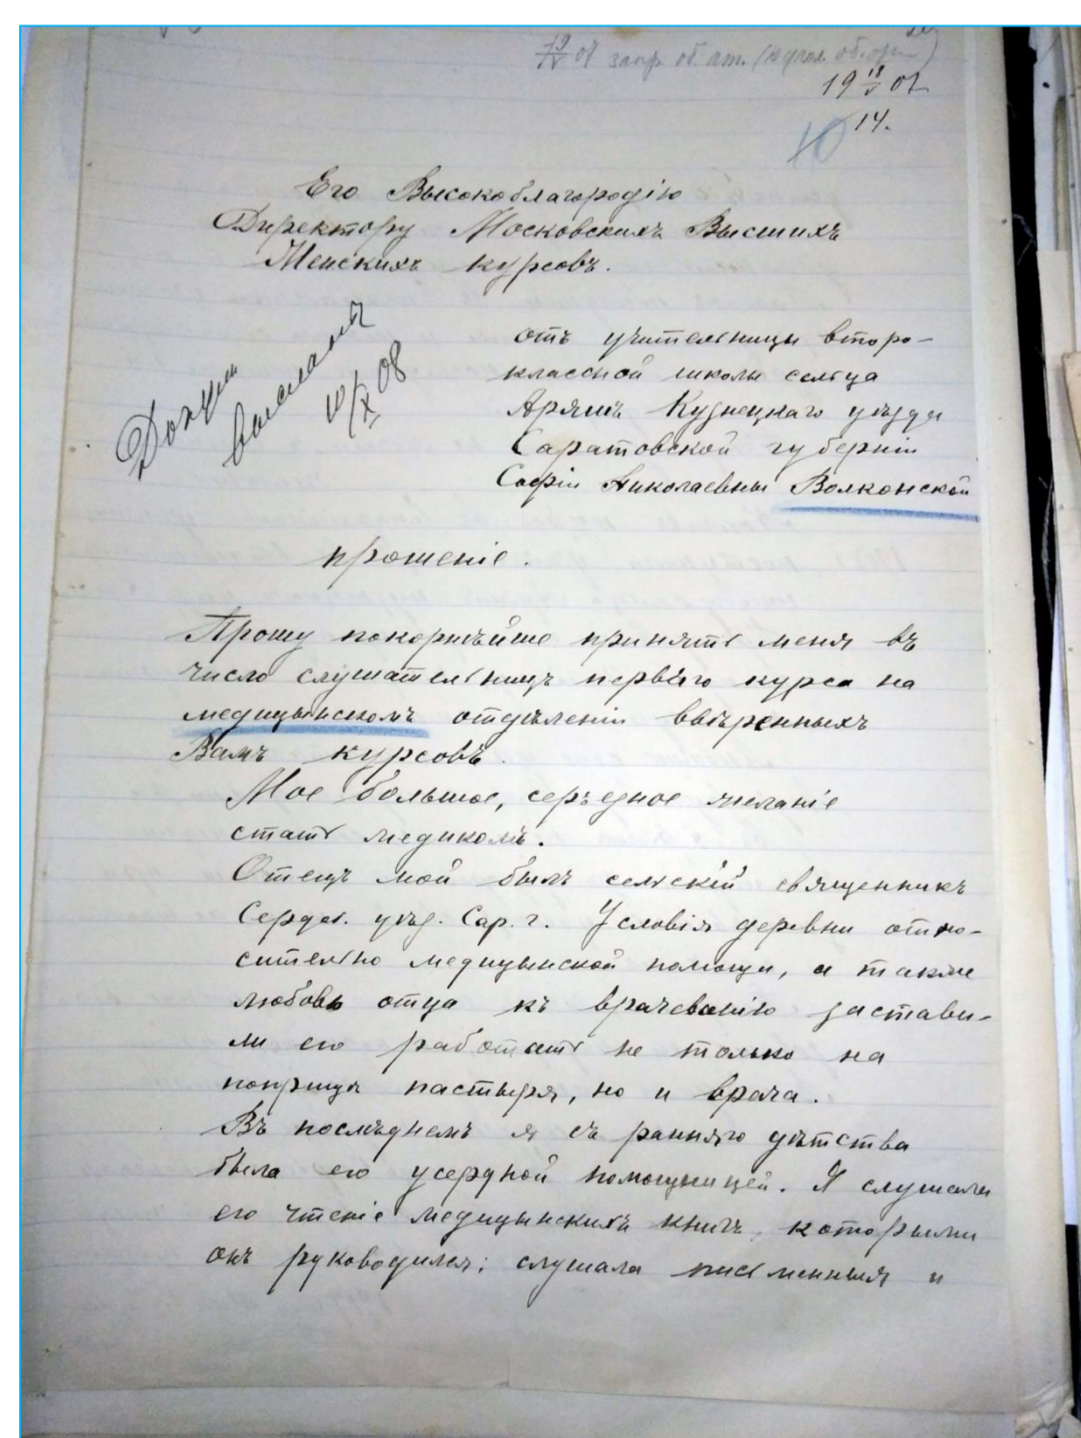 19 18/V 07
14.
Его Высокоблагородію
Директору Московскихъ Высшихъ
Женскихъ курсовъ.
Докум
высланы
10/X 08
отъ учительницы второ-
классной школы сельца
Аряшъ Кузнецкаго уѣзда
Саратовской губерніи
Софіи Николаевны Волконской
прошеніе.
Прошу покорнѣйше принять меня въ
число слушательницъ перваго курса на
медицынскомъ отдѣленіи ввѣренныхъ
Вамъ курсовъ.
Мое большое, серьезное желаніе
стать медикомъ.
Отецъ мой былъ сельскій священникъ
Сердоб. уѣз. Сар. г. Условія деревни отно-
сительно медицынской помощи, а также
любовь отца къ врачеванію застави-
ли его работать не только на
поприщѣ пастыря, но и врача.
Въ послѣднемъ я съ ранняго дѣтства
была его усердной помощницей. Я слушала
его чтеніе медицынскихъ книгъ, которыми
онъ руководился; слушала письменныя и